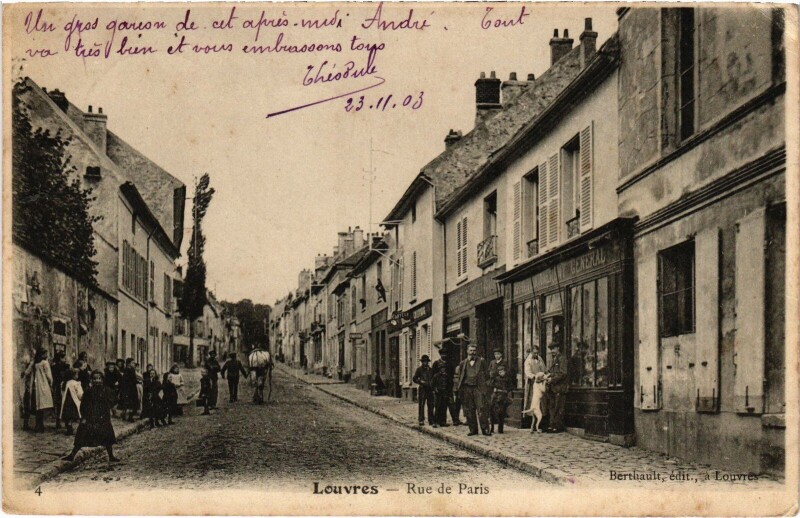 Un gros garçon de cet après-midi André. Tout
va très bien et vous embrassons tous
23.11.03
GÉNÉRAL
4
Louvres — Rue de Paris
Berthault, édit., à Louvres